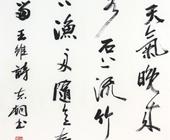 天氣晚來
石上流竹
漁舟隨意
王維詩